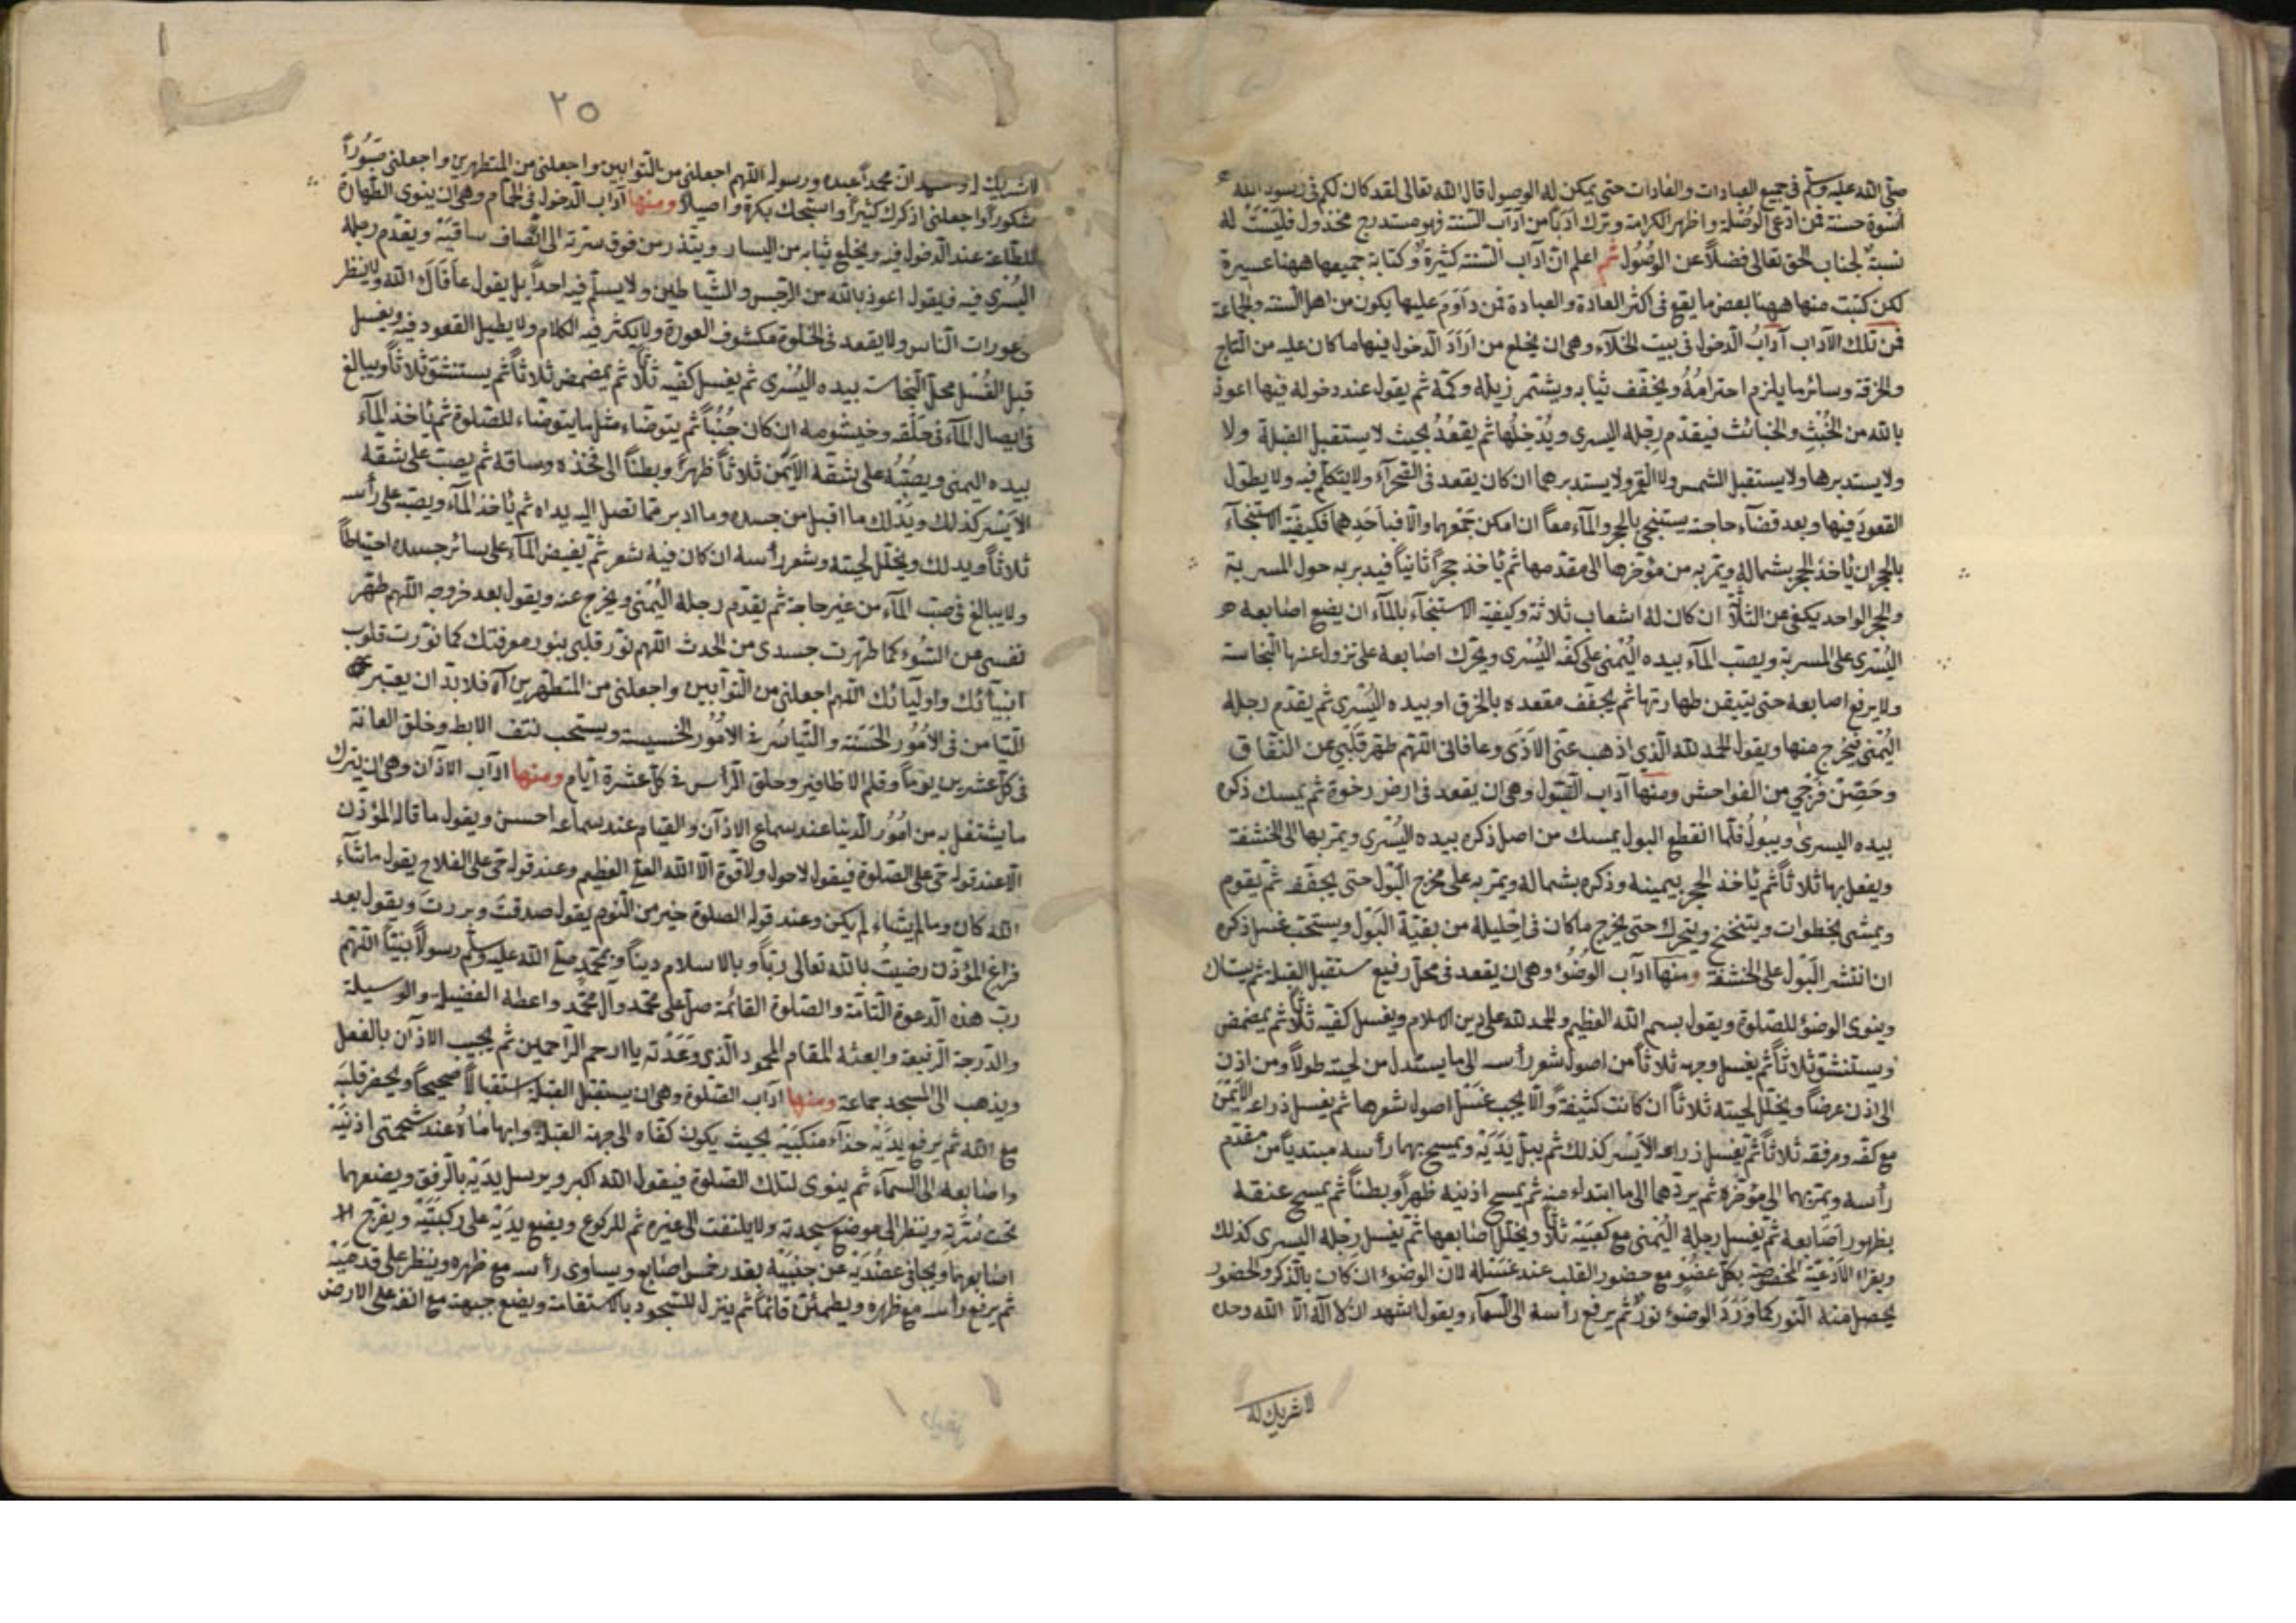 صلى الله عليه وسلم في جميع العبادات والعادات حتى يمكن له الوصول قال الله تعالى لقد كان لكم في رسول الله
اسوة حسنة فمن ادعى الوصلة واظهر الكرامة وترك ادبا من آداب السنة فهو مستدرج مخذول فليست له
نسبة لجناب الحق تعالى فضلا عن الوصول ثم اعلم ان آداب السنة كثيرة وكتابة جميعها ههنا عسيرة
لكن كتبت منها ههنا بعض ما يقع في اكثر العادة والعبادة فمن داوم عليها يكون من اهل السنة والجماعة
فمن تلك الآداب آداب الدخول في بيت الخلاء وهي ان يخلع من اراد الدخول فيها ما كان عليه من التاج
والخرقة وسائر ما يلزم احترامه ويخفف ثيابه ويشتمر زيله وكمه ثم يقول عند دخوله فيها اعوذ
بالله من الخبث والخبائث فيقدم رجله اليسرى ويدخلها ثم يقعد بحيث لا يستقبل القبلة ولا
ولا يستدبرها ولا يستقبل الشمس ولا القمر ولا يستدبرهما ان كان يقعد في الصحراء ولا يتكلم فيه ولا يطول
القعود فيها وبعد قضاء حاجته يستنجي بالحجر والماء معا ان امكن جمعهما والا فباحدهما فكيفية الاستنجاء
بالحجر ان ياخذ الحجر بشماله ويمر به من مؤخرها الى مقدمها ثم ياخذ حجرا ثانيا فيدبر به حول المسربة
والحجر الواحد يكفي عن الثلاثة ان كان له اشعاب ثلاثة وكيفية الاستنجاء بالماء ان يضع اصابعه
اليسرى على المسربة ويصب الماء بيده اليمنى على كفه اليسرى ويحرك اصابعه على نزول عنها النجاسة
ولا يرفع اصابعه حتى يتيقن طهارتها ثم يجفف مقعده بالخرق او بيده اليسرى ثم يقدم رجله
اليمنى فيخرج منها ويقول الحمد لله الذي اذهب عني الاذى وعافاني اللهم طهر قلبي عن النفاق
وحصن فرجي من الفواحش ومنها آداب البول وهي ان يقعد في ارض رخوة ثم يمسك ذكره
بيده اليسرى ويبول فلما انقطع البول يمسك من اصل ذكره بيده اليسرى ويمر بها الى الخشفة
ويفعل بها ثلاثا ثم ياخذ الحجر بيمينه وذكره بشماله ويمر به على مخرج البول حتى يجفف ثم يقوم
ويمشي بخطوات ويتنحنح ويتحرك حتى يخرج ما كان في احليله من بقية البول ويستحب غسل ذكره
ان انتشر البول على الخشفة ومنها آداب الوضوء وهي ان يقعد في محل رفيع مستقبل القبلة ثم يستاك
وينوي الوضوء للصلوة ويقول بسم الله العظيم والحمد لله على دين الاسلام ويغسل كفيه ثلاثا ثم يمضمض
ويستنشق ثلاثا ثم يغسل وجهه ثلاثا من اصول شعر رأسه الى ما يستدل من لحيته طولا ومن اذن
الى اذن عرضا ويخلل لحيته ثلاثا ان كانت كثيفة والا يجب غسل اصول شعرها ثم يغسل ذراعه الايمن
مع كفه ومرفقه ثلاثا ثم يغسل ذراعه الايسر كذلك ثم يبل يديه ويمسح بهما رأسه مبتديا من مقدم
رأسه ويمر بهما الى مؤخره ثم يردهما الى ما ابتداء منه ثم يمسح اذنيه ظهرا وبطنا ثم يمسح عنقه
بظهور اصابعه ثم يغسل رجله اليمنى مع كعبيه ثلاثا ويخلل اصابعها ثم يغسل رجله اليسرى كذلك
ويقراء الادعية المخصوصة بكل عضو مع حضور القلب عند غسله لان الوضوء ان كان بالذكر والحضور
يحصل منه النور كما ورد الوضوء نور ثم يرفع رأسه الى السماء ويقول اشهد ان لا اله الا الله وحده
لا شريك له
٢٥
لا شريك له واشهد ان محمدا عبده ورسوله اللهم اجعلني من التوابين واجعلني من المتطهرين واجعلني صبورا
شكورا واجعلني اذكرك كثيرا واسبحك بكرة واصيلا ومنها آداب الدخول في الحمام وهي ان ينوي الطهارة
للطاعة عند الدخول فيه ويخلع ثيابه من اليسار ويتذر من فوق سترته الى انصاف ساقيه ويقدم رجله
اليسرى فيه فيقول اعوذ بالله من الرجس والشياطين ولا يسلم فيه احدا بل يقول عافاك الله ولا ينظر
عورات الناس ولا يقعد في الخلوة مكشوف العورة ولا يكثر فيه الكلام ولا يطيل القعود فيه ويغسل
قبل الغسل محل النجاست بيده اليسرى ثم يغسل كفيه ثلاثا ثم يمضمض ثلاثا ثم يستنشق ثلاثا ويبالغ
في ايصال الماء في حلقه وخيشومه ان كان جنبا ثم يتوضاء مثل ما يتوضاء للصلوة ثم ياخذ الماء
بيده اليمنى ويصبه على شقه الايمن ثلاثا ظهرا وبطنا الى فخذه وساقه ثم يصب على شقه
الايسر كذلك ويدلك ما اقبل من جسده وما ادبر مما تصل اليه يداه ثم ياخذ الماء ويصبه على رأسه
ثلاثا ويدلك ويخلل لحيته وشعر رأسه ان كان فيه شعر ثم يفيض الماء على سائر جسده احتياطا
ولا يبالغ في صب الماء من غير حاجة ثم يقدم رجله اليمنى ويخرج عنه ويقول بعد خروجه اللهم طهر
نفسي عن السوء كما طهرت جسدي من الحدث اللهم نور قلبي بنور معرفتك كما نورت قلوب
انبيائك واوليائك اللهم اجعلني من التوابين واجعلني من المتطهرين آه فلا بد ان يعتبر
التيامن في الامور الحسنة والتياسر في الامور الخسيسة ويستحب نتف الابط وخلق العانة
في كل عشرين يوما وقلم الاظافير وحلق الرأس في كل عشرة ايام ومنها آداب الاذان وهي ان يترك
ما يشتغل به من امور الدنيا عند سماع الاذان والقيام عند سماعه احسن ويقول ما قاله المؤذن
الا عند قوله حي على الصلوة فيقول لا حول ولا قوة الا الله العلي العظيم وعند قوله حي على الفلاح يقول ماشاء
الله كان وما لم يشاء لم يكن وعند قوله الصلوة خير من النوم يقول صدقت وبررت ويقول بعد
فراغ المؤذن رضيت بالله تعالى ربا وبالاسلام دينا وبمحمد صلى الله عليه وسلم رسولا نبيا اللهم
رب هذه الدعوة التامة والصلوة القائمة صل على محمد وآل محمد واعطه الفضيلة والوسيلة
والدرجة الرفيعة وابعثه المقام المحمود الذي وعدته يا ارحم الراحمين ثم يجيب الاذان بالفعل
ويذهب الى المسجد بجماعة ومنها آداب الصلوة وهي ان يستقبل القبلة استقبالا صحيحا ويحضر قلبه
مع الله ثم يرفع يديه حذاء منكبيه بحيث يكون كفاه الى جهة القبلة وابهاماه عند شحمتي اذنيه
واصابعه الى السماء ثم ينوي لتلك الصلوة فيقول الله اكبر ويرسل يديه بالرفق ويضعهما
تحت سرته وينظر الى موضع سجدته ولا يلتفت الى غيره ثم للركوع ويضع يديه على ركبتيه ويفرج
اصابعهما ويجافي عضديه عن جنبيه بقدر خمس اصابع ويساوي رأسه مع ظهره وينظر على قدميه
ثم يرفع رأسه مع ظهره ويطمئن قائما ثم ينزل للسجود بالاستقامة ويضع جبهته مع انفه على الارض